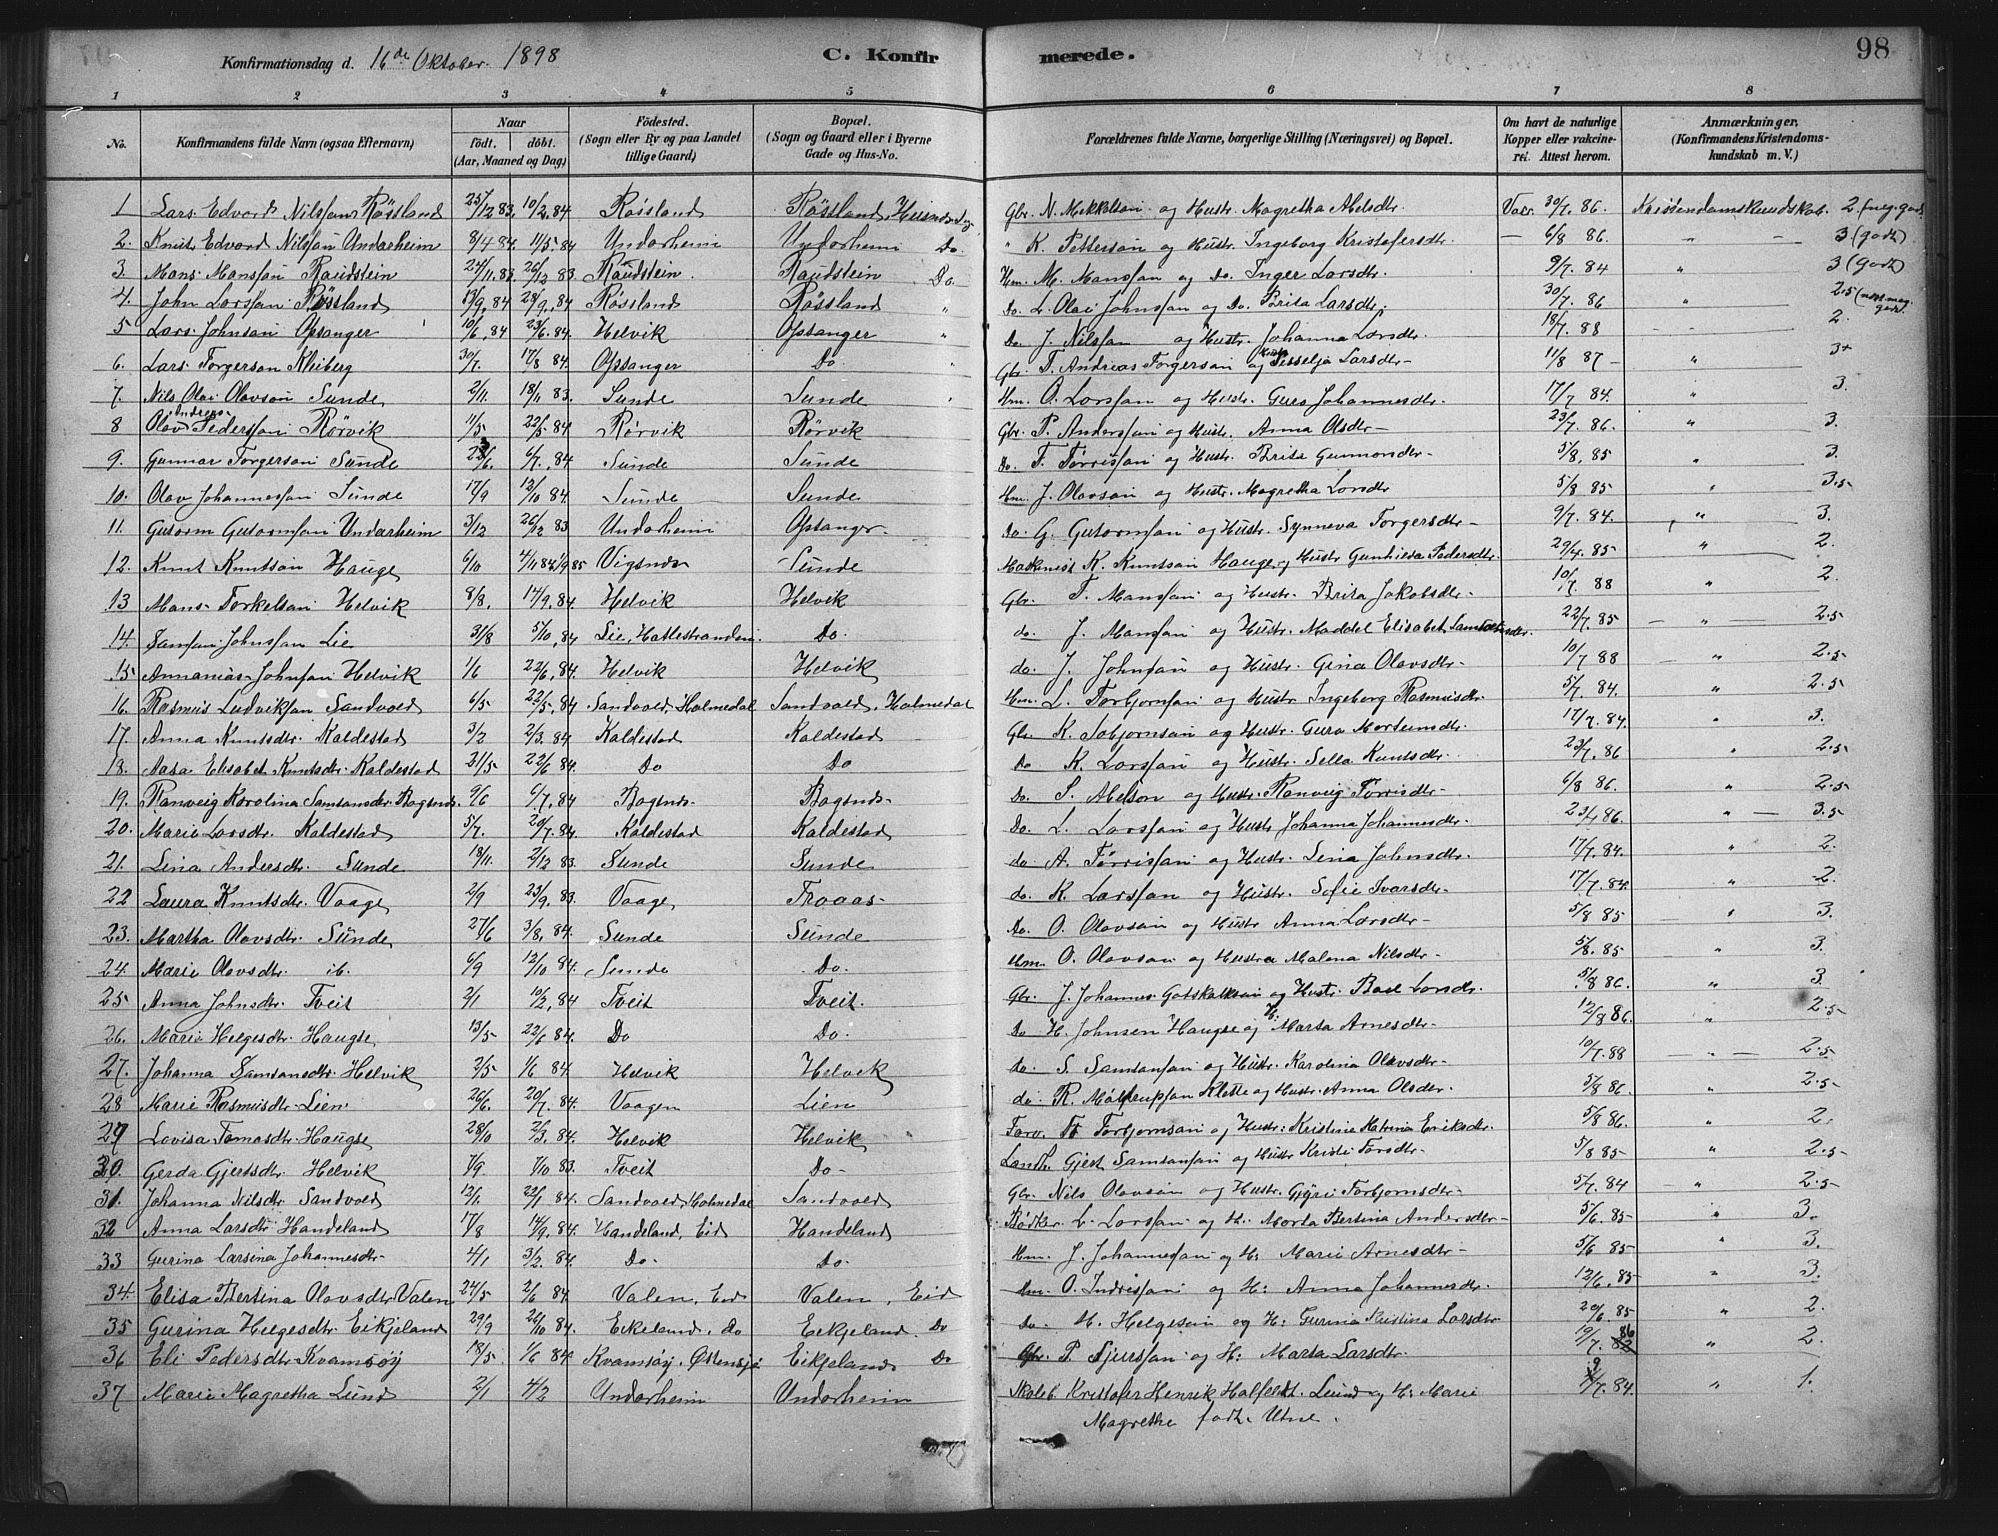 98
Konfirmationsdag d. 16de Oktober 1898 C. Konfirmerede.
1 2 3 4 5 6 7 8
No. Konfirmandens fulde Navn (ogsaa Efternavn) Naar født. døbt. (Aar, Maaned og Dag) Fødested. (Sogn eller By og paa Landet tillige Gaard) Bopæl. (Sogn og Gaard eller i Byerne Gade og Hus-No. Forældrenes fulde Navne, borgerlige Stilling (Næringsvei) og Bopæl. Om havt de naturlige Kopper eller vakcineret. Attest herom. Anmærkninger. (Konfirmandens Kristendomskundskab m. V.)
1 Lars Edvard Nilssøn Røssland 25/12 83. 10/2, 84 Røssland Røssland, Gbr. N. Mikkelsøn og Hustr. Magretha Abelsdtr. Vacc. 30/7. 86. Kristendomskundskab. 2 (meg. godt)
2. Knut Edvard Nilssøn Undarheim 8/4 84. 11/5 84 Undarheim Undarheim Do. " K. Pettersøn og Hustr. Ingeborg Kristofersdtr. — 6/8 86. " 3 (godt)
3. Mons Monssøn Raudstein 24/11. 83. 26/12 83. Raudstein. Raudstein Do. Hm. M. Monssøn og Do. Inger Larsdtr. 9/7. 84 " 3 (Godt)
4. John Larssøn Røssland 13/9, 84 28/9, 84 Røssland Røssland " Do. L. Olai Johnssøn og Do. Brita Larsdtr. 30/7. 86 " 2.5 (næst meg. godt.
5 Lars Johnsøn Opsanger 10/6, 84 23/6. 84. Helvik Opsanger " Do J. Nilssøn og Hustr. Johanna Larsdtr. 18/7. 88 - - 2.
6. Lars Torgerson Kleiberg 30/7. 17/8 84. Opsanger Do " Gbr. T. Andreas Torgersøn og Kirsti Sisselja Larsdtr - 11/8 87 - " 3+
7. Nils Olai Olavsøn Sunde 2/11. 18/11 83. Sunde Sunde " Hm. O. Larssøn og Hustr. Guro Johannesdtr. 17/7 84. " 3.
8 Olav Andreas Pedersøn Rörvik 11/5 22/5 84 Rörvik Rörvik Gbr. P. Anderssøn og Hustr. Anna Olsdtr - 23/7. 86. " 3.
9. Gunnar Torgersøn Sunde 23/6. 6/7. 84 Sunde Sunde Do. T. Tørrissøn og Hustr. Brita Gunnarsdtr - 5/8. 85 " 3.
10. Olav Johannessøn Sunde 17/9 12/10 84. Sunde Sunde Hm. J. Olavsøn og Hustr. Magretha Larsdtr 5/8 85 " 3.5
11. Gutorm Gutormssøn Undarheim 3/12 26/12 83. Undarheim Opsanger Do. G. Gutormsøn og Hustr. Synneva Torgersdtr - 9/7. 84. " 3.
12. Knut Knutsøn Hauge 6/10 4/11 84 1/9 85 Vigsnes Sunde K. Knutsøn Hauge og Hustr Gunhilda Pedersdtr. 29/4. 85 " 2.
13 Mons Torkelsøn Helvik 8/8. 14/9. 84. Helvik Helvik Gbr. T. Monssøn og Hustr. Brita Jakobsdtr - 10/7 88 " 2.
14. Samson Johnssøn Lie 31/8 5/10, 84 Lie, Hatlestranden. Do. do. J. Monssøn og Hustr. Maddel Elisabet Samsonsdtr. 22/7. 85 - " - 2.5
15 Annanias Johnssøn Helvik 1/6 22/6, 84. Helvik Helvik do. J. Johnsøn og Hustr. Gina Olavsdtr - 10/7 88 — " 2.5
16. Rasmus Ludviksøn Sandvold 6/5 22/5, 84 Sandvold, Holmedal Sandvold, Holmedal Hm. L. Torbjørnsøn og Hustr. Ingeborg Rasmusdtr. 5/7. 84. " 2.5
17. Anna Knutsdtr. Kaldestad 3/2 2/3. 84 Kaldestad Kaldestad Gbr. K. Asbjørnsøn og Hustr. Guro Mortensdtr. 17/7. 84. " 3.
18. Aasa Elisabet Knutsdtr. Kaldestad 31/5 22/6 84. Do Do Do K. Larssøn og Hustr. Sella Knutsdtr. 23/7. 86 " 2.5
19. Ranveig Karolina Samsonsdtr. Bogsnes. 9/6 6/7. 84 Bogsnes Bogsnes Do. S. Abelson og Hustr. Ranveig Tørrisdtr - 6/8 86. " 2.5
20. Marie Larsdtr. Kaldestad 5/7. 20/7. 84. Kaldestad Kaldestad Do. L. Larssøn og Hustr Johanna Johannesdtr. 23/4 86. " — 3.5
21. Lina Andersdtr. Sunde 18/11. 2/12 83. Sunde Sunde do. A. Tørrissøn og Hustr. Sina Johnsdtr. 17/7. 84. " 2.
22 Laura Knutsdtr. Vaage 2/9 23/9. 83. Vaage Traaas do. K. Larssøn og Hustr. Sofie Ivarsdtr - 17/7. 84. " 2.
23. Martha Olavsdtr. Sunde 27/6 3/8. 84. Sunde Sunde Do. O. Olavsøn og Hustr Anna Larsdtr - 5/8 85 - " 3.
24. Marie Olavsdtr. ib. 6/9 12/10 84. Sunde Do. Hm. O. Olavsøn og Hustru Malena Nilsdtr - 5/8. 85 " 3.
25 Anna Johnsdtr. Tveit 2/1 10/2, 84 Tveit Tveit. Gbr. J. Johannes Gotskalksøn og Hustr. Larsdtr. 5/8 86. " 3.
26. Marie Helgesdtr. Haugse 13/5 22/6 84. Do Do. Do H. Johnsen Haugse og H: Marta Arnesdtr - 12/8 86. " 2.5
27. Johanna Samsonsdtr. Helvik 2/5 1/6 84 Helvik Helvik do. S. Samsonsøn og Hustr. Karolina Olavsdtr - 10/7. 88 " — 2.5
28 Marie Rasmusdtr. Lien 26/6. 20/7. 84. Vaagen Lien do R. Klette og Hustr. Anna Olsdtr. 5/8 86. " 2.5
29 Lovisa Tomasdtr. Haugse 28/10 2/3. 84. Helvik Helvik Forv. T. Torbjørnsøn og Hustr: Kristine Katrina Eriksdtr. 5/8 86. " 2.
30. Gerda Gjertsdtr Helvik 7/9 7/10 83. Tveit Do - Landh. Gjert Samsonsøn og Hustr Kristi Torsdtr - 5/8 85 - " 2.5
31. Johanna Nilsdtr. Sandvold 12/1. 22/1 84. Sandvold, Holmedal Sandvold Gbr. Nils Olavsøn og Hustr. Gjøri Torbjørnsdtr - 5/7. 84 - " 2.5
32 Anna Larsdtr. Handeland 17/8 14/9. 84. Handeland, Eid Handeland Bødker L. Larssøn - og H. Marta Bertina Andersdtr - 5/6. 85 - " 3.
33 Gurina Larsina Johannesdtr 4/1 3/2. 84. Do. Do. Hm. J. Johannessøn og H: Marie Arnesdtr - 5/6 85 - " 3.
34. Elisa Bertina Olavsdtr. Valen 24/5 2/6 84. Valen, Eid Valen, Eid Hm. O. Indrissøn og H: Anna Johannesdtr. 12/6. 85 " 3.
35 Gurina Helgesdtr. Eikjeland 29/9 26/10 84. Eikeland, Do Eikjeland, Do Do H. Helgesøn og H: Gurina Kristina Larsdtr 20/6. 85 " 2.
36 Eli Pedersdtr. Kvamsøy 18/5. 1/6 84. Kvamsøy, Østensjø Eikjeland Do Gbr. P. Sjurssøn og H: Marta Larsdtr. 19/7. 86 " 2.
37 Marie Magretha Lund 2/1 4/2 Undarheim Undarheim Skoleb. Kristofer Henrik Halfeldt Lund og H: Marie 9/7. 84. " 1.
Magrethe født Utne.